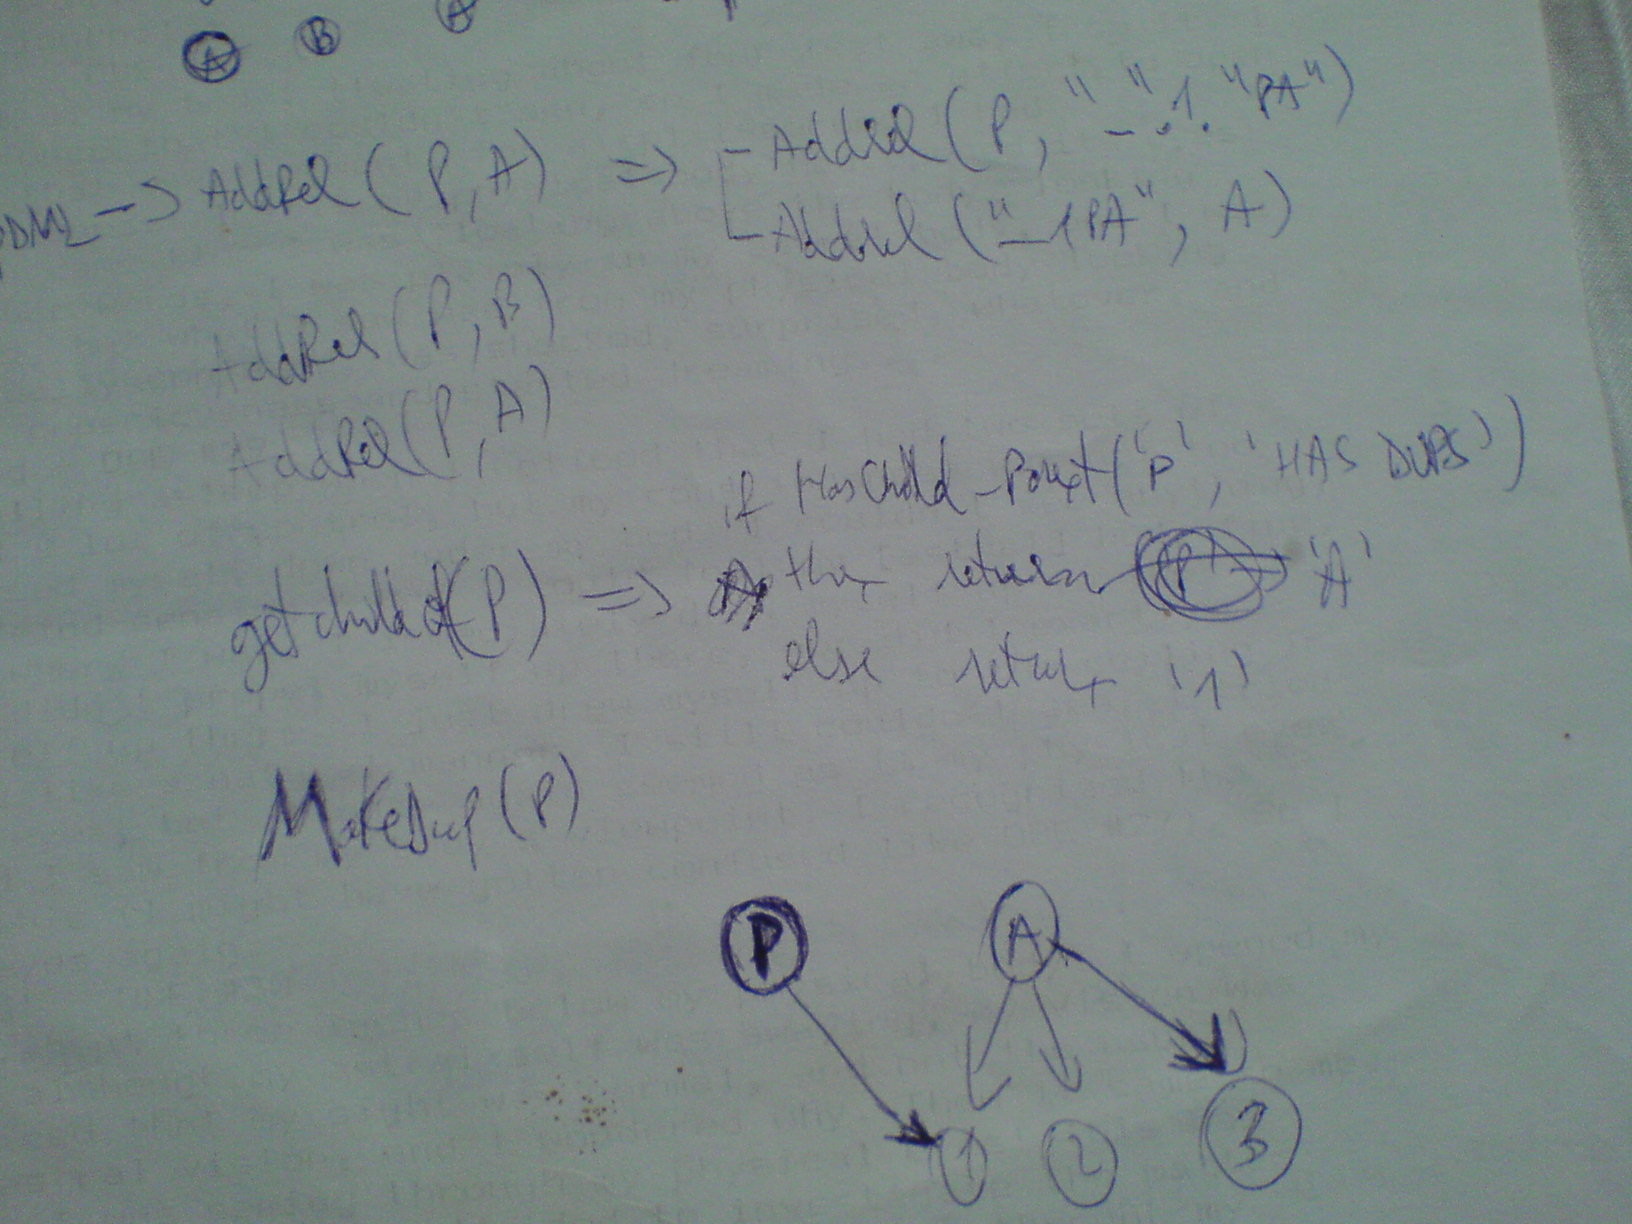 A B A
-> AddRel( P, A) => - AddRel( P, "_".1."PA")
- AddRel ("_1PA", A)
AddRel( P, B)
AddRel(P, A)
if HasChild_Point('P', 'HAS DUPS')
getchild (P) => then return 'A'
else return '1'
MakeDup (P)
P A
1 2 3